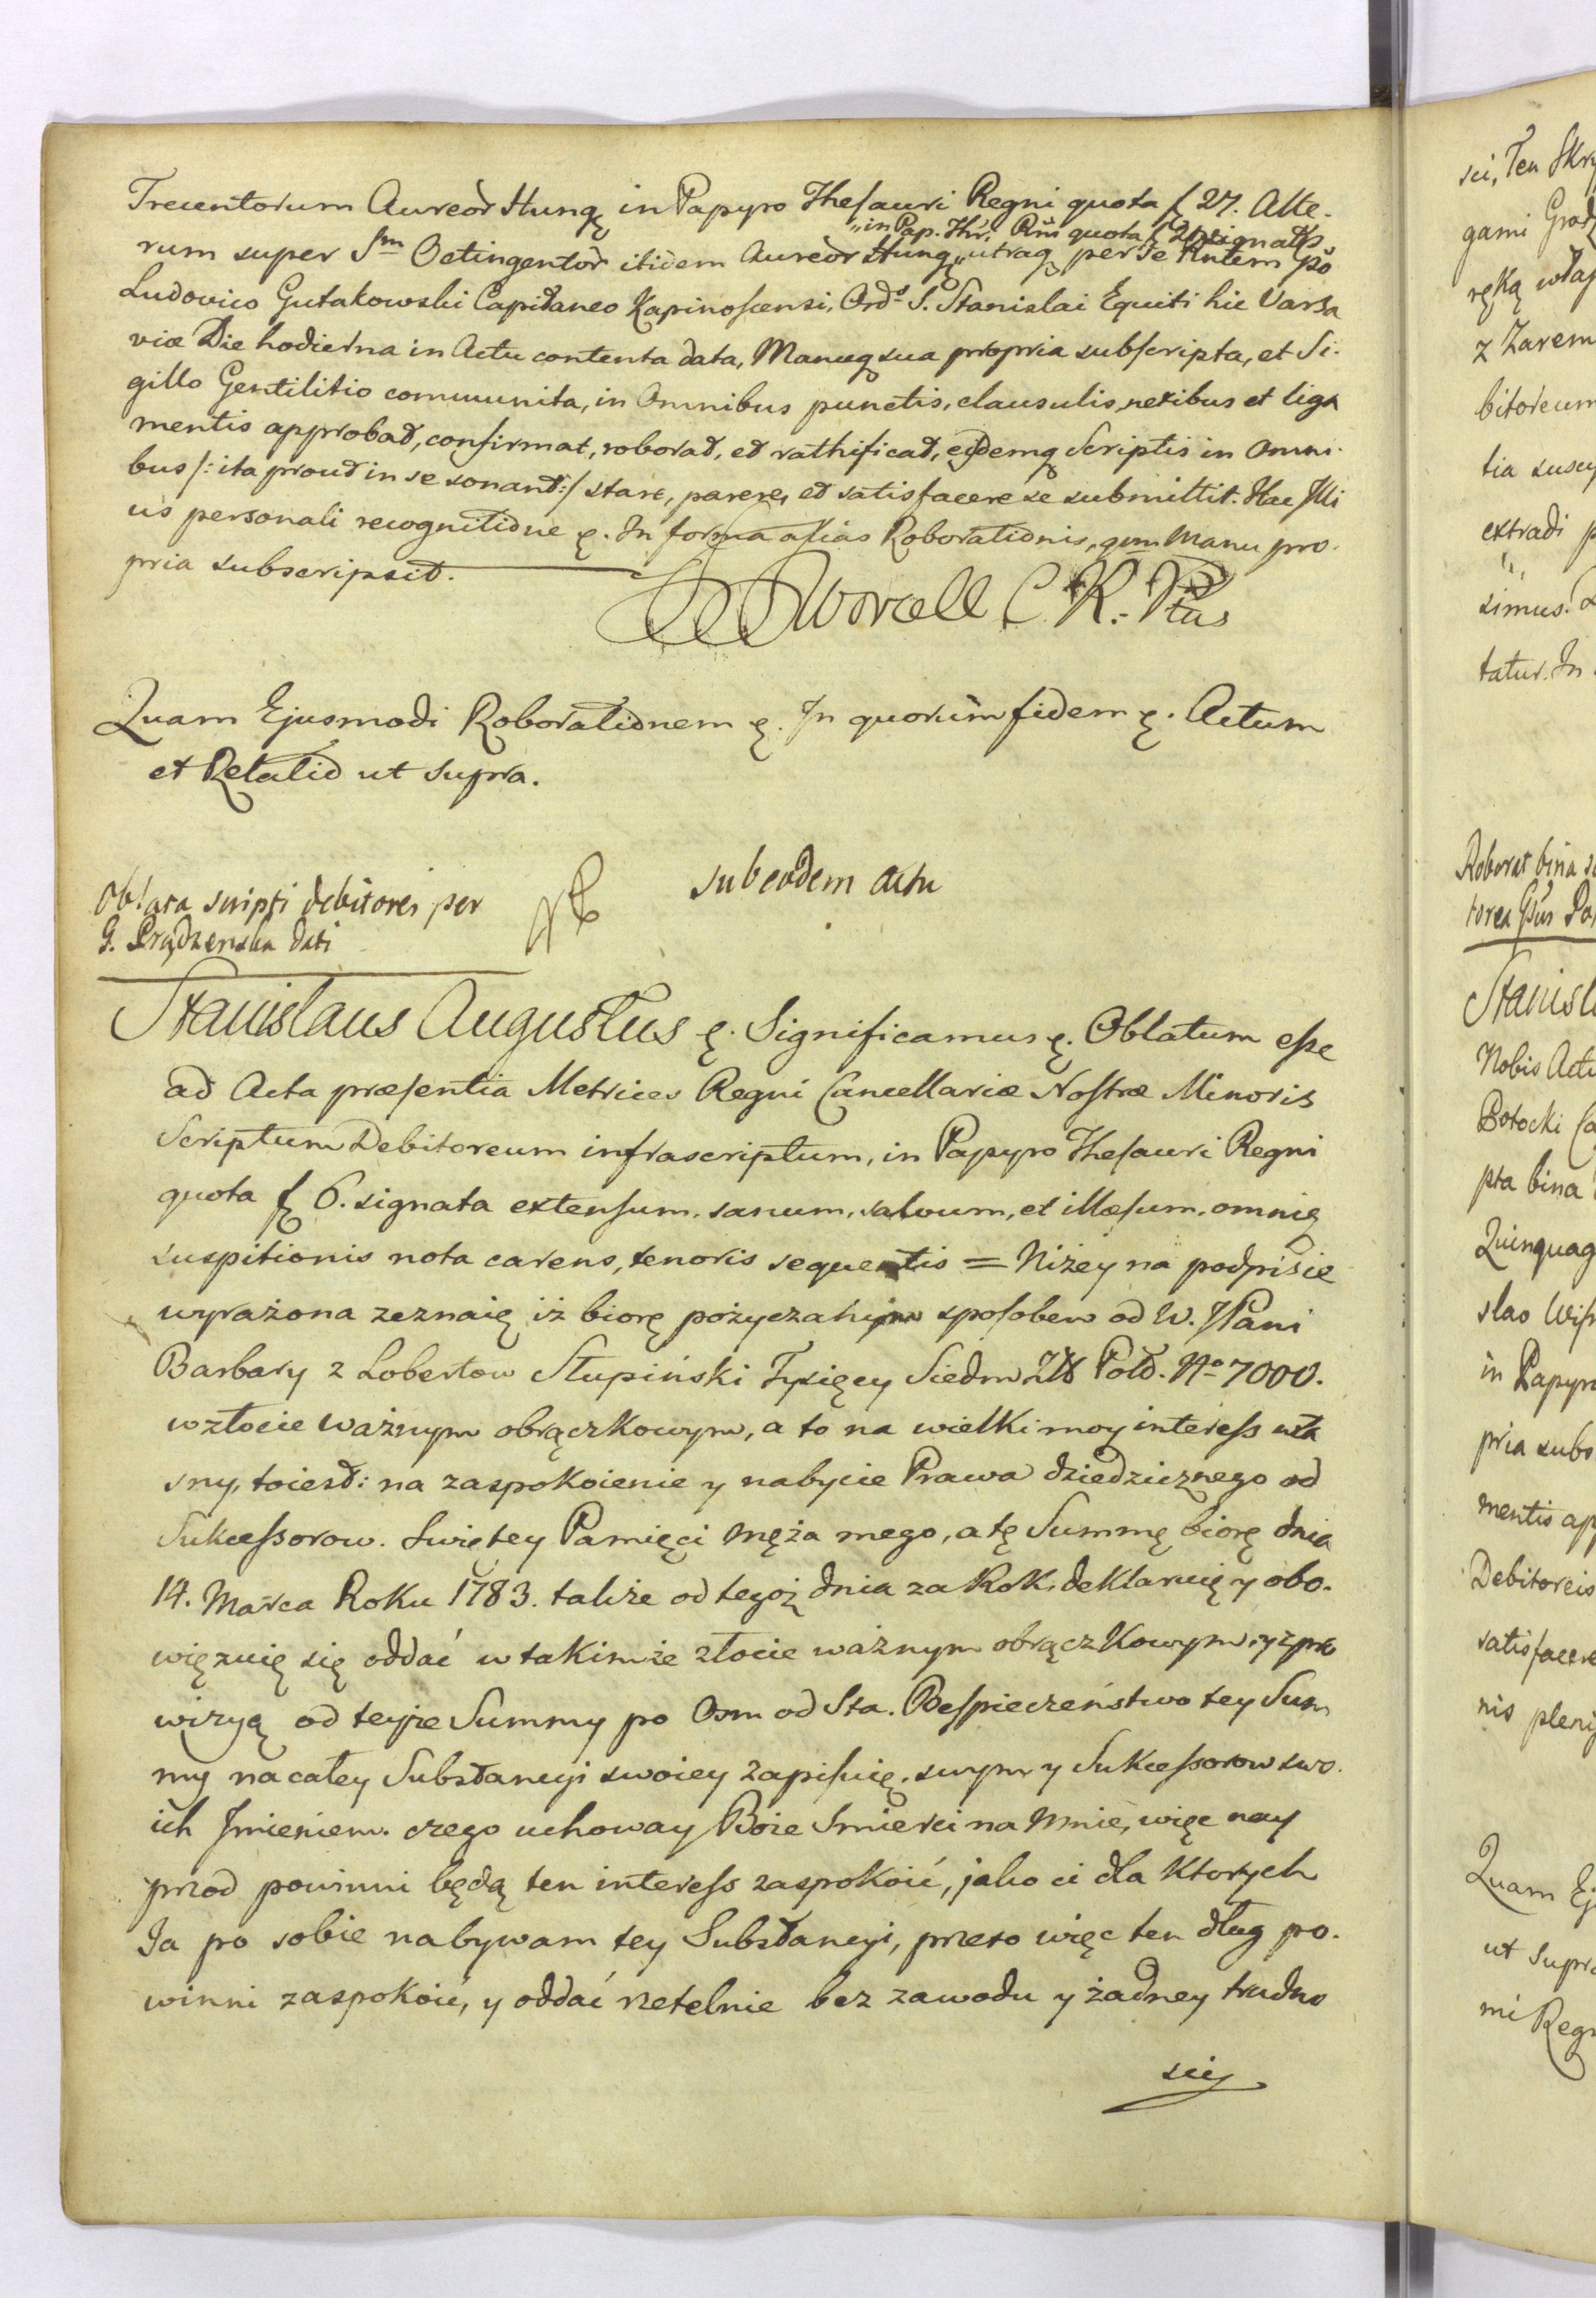 Trecentorum Aureor Hungq in Papyro Thesauri Regni quota f 27. Alte-
„in Pap. Thr. Rni quota f 21 signatis
rum super Sm Octingentor itidem Aureor Hungq „utraq per se Rntem Gso
Ludovico Gutakowski Capitaneo Kapinoscensi, Ords S. Stanislai Equiti hic Varsa
viæ Die hodierna in Actu contenta data, Manuq sua propria subscripta, et Si-
gillo Gentilitio communita, in Omnibus punctis, clausulis, nexibus et liga
mentis approbat, confirmat, roborat, et rathificat, ejsdemq Scriptis in Omni-
bus /: ita prout in se sonant :/ stare, parere, et satisfacere se submittit. Hac Illi
us personali recognitione ę. In forma alias Roborationis, qm Manu pro-
pria subscripsit.
Worcell C. R. Ptus
Quam Ejusmodi Roborationem ę. In quorum fidem ę. Actum
et Relatio ut supra.
Oblata scripti debitorei per
G. Prądzenska dati
sub eodem actu
Stanislaus Augustus ę. Significamus ę. Oblatum esse
ad Acta præsentia Metrices Regni Cancellariæ Nostræ Minoris
Scriptum Debitoreum infrascriptum, in Papyro Thesauri Regni
quota f 6. signata extensum, sanum, salvum, et illæsum, omniq
suspitionis nota carens, tenoris sequentis = Niżey na podpisie
wyrażona zeznaię iż biorę pożyczanym sposobem od W. JPani
Barbary z Lobertow Stupiński Tysięcy Siedm Zł Pold. No 7000.
w złocie ważnym obrączkowym, a to na wielki moy interess wła
sny, toiest: na zaspokoienie y nabycie Prawa dziedzicznego od
Sukcessorow. Swiętey Pamięci Męża mego, a tę Summę biorę dnia
14. Marca Roku 1783. także od tegoż dnia za Rok, deklaruię y obo-
więzuię się oddać w takimże złocie ważnym obrączkowym, y z pro
wizyą od teyże Summy po Osm od Sta. Bespieczeństwo tey Sum
my na całey Substancyi swoiey zapisuię, swym y Sukcessorow swo-
ich Imieniem. czego uchoway Boże Smierci na Mnie, więc nay
przod powinni będą ten interess zaspokoić, jako ci dla Ktorych
Ja po sobie nabywam tey Substancyi, przeto więc ten dług po-
winni zaspokoić, y oddać rzetelnie bez zawodu y żadney trudno
sci,
sci, Ten Skry
gami Grod
ręką włas
z Zarem
bitoreum
tia suscep
extradi p
simus.
tatur. In
Roborat bina
torea Gsus Po
Stanisl
Nobis Actu
Potocki Ca
pta bina
Quinquag
slao Wis
in Papyro
pria subs
mentis ap
Debitoreis
satisfacere
nis pleni
Quam Ej
ut Supra
mi Regn